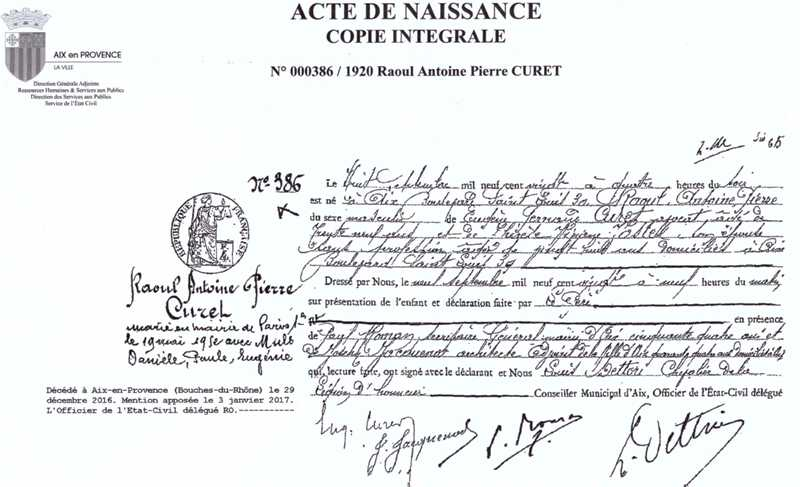 ACTE DE NAISSANCE
COPIE INTEGRALE
N° 000386 / 1920 Raoul Antoine Pierre CURET
AIX en PROVENCE
LA VILLE
Direction Générale Adjointe
Ressources Humaines & Services aux Publics
Direction des Services aux Publics
Service de l'État Civil
N° 386
REPUBLIQUE FRANÇAISE
Raoul Antoine Pierre
Curet
marié en mairie de Paris
le 19 mai 195 avec
Danièle, Paule, Eugénie
Décédé à Aix-en-Provence (Bouches-du-Rhône) le 29
décembre 2016. Mention apposée le 3 janvier 2017.
L'Officier de l'Etat-Civil délégué RO.-----------
Le huit septembre mil neuf cent vingt à quatre heures du soir
est né à Aix Boulevard Saint Louis 39, Raoul, Antoine, Pierre
du sexe masculin de Eugène Germain Curet âgé de
trente neuf ans et de son épouse
profession âgée de vingt huit ans domiciliés à Aix
Boulevard Saint Louis 39
Dressé par Nous, le neuf septembre mil neuf cent vingt à neuf heures du matin
sur présentation de l'enfant et déclaration faite par le Père
en présence
de Paul secrétaire Général mairie d'Aix cinquante quatre ans et
de architecte de la ville d'Aix quarante quatre ans domiciliés
qui, lecture faite, ont signé avec le déclarant et Nous Louis Chevalier de la
Légion d'honneur Conseiller Municipal d'Aix, Officier de l'État-Civil délégué
Eug. Curet